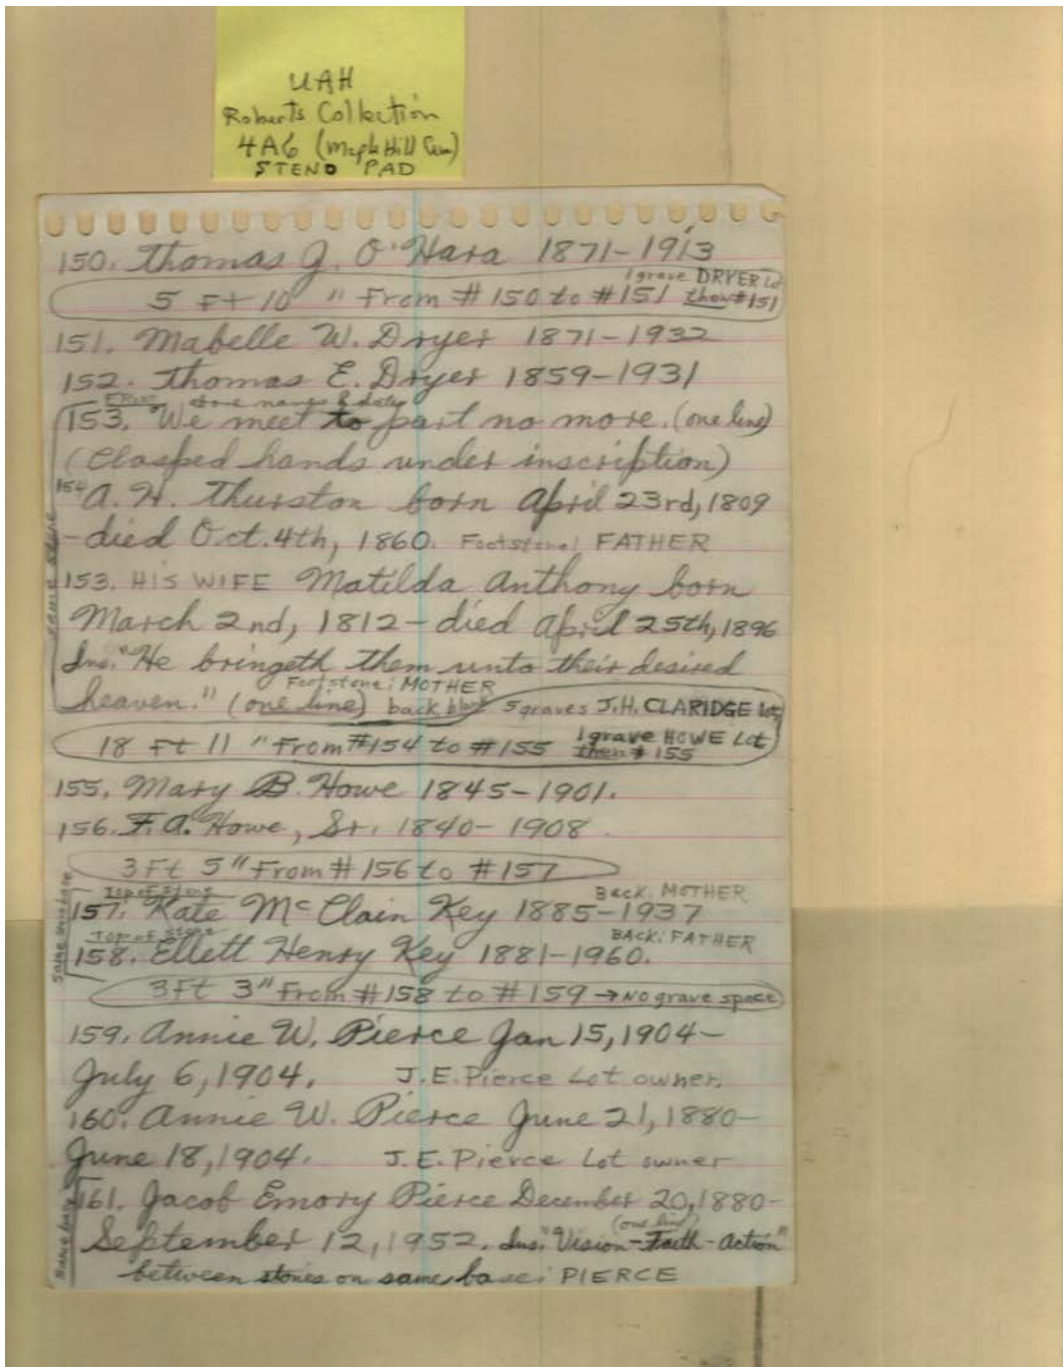 UAH
Roberts Collection
4A6 (Maple Hill Cem)
STENO PAD
150. Thomas J. O'Hara 1871-1913
1 grave DRYER Lot
5 Ft 10 " From #150 to #151 then #151
151. Mabelle W. Dryer 1871-1932
152. Thomas E. Dryer 1859-1931
above names & dates
153. "We meet to part no more. (one line)
(Clasped hands under inscription)
154 A. H. Thurston born April 23rd, 1809
-died Oct. 4th, 1860. Footstone: FATHER
same stone
153. HIS WIFE Matilda Anthony born
March 2nd, 1812-died April 25th, 1896
Ins. "He bringeth them unto their desired
Footstone: MOTHER
heaven." (one line) back blank 5 graves J.H. CLARIDGE Lot
18 Ft 11 " From #154 to #155 1 grave HOWE Lot
then #155
155. Mary B. Howe 1845-1901.
156. F. A. Howe, Sr. 1840-1908.
3 Ft 5" From #156 to #157
Top of Stone Back: MOTHER
157. Kate McClain Key 1885-1937
Top of Stone BACK: FATHER
158. Ellett Henry Key 1881-1960.
same base
3Ft 3" From #158 to #159 → No grave space
159. Annie W. Pierce Jan 15, 1904-
July 6, 1904. J.E. Pierce Lot owner.
160. Annie W. Pierce June 21, 1880-
June 18, 1904. J.E. Pierce Lot owner
161. Jacob Emory Pierce December 20, 1880-
(one line)
September 12, 1952. Ins. "Vision-Faith-Action"
Same base
between stones on same base: PIERCE